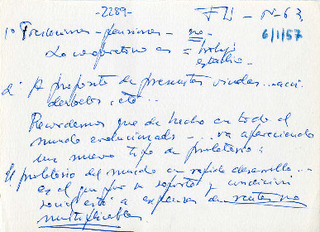 -2289-
FLI - N-63
6/1/57
1º Posiciones - pensiones - no -
Lo cooperativo es = trabajo
estable -
2: A propósito de presuntas viudas... acci
dentados, etc...
Recordemos que de hecho en todo el
mundo evolucionado - ... va apareciendo
un nuevo tipo de proletario:
El proletario del mundo en rápido desarrollo...
es el que por su aporte y condición
social está a expensas de rentas no
multiplicables